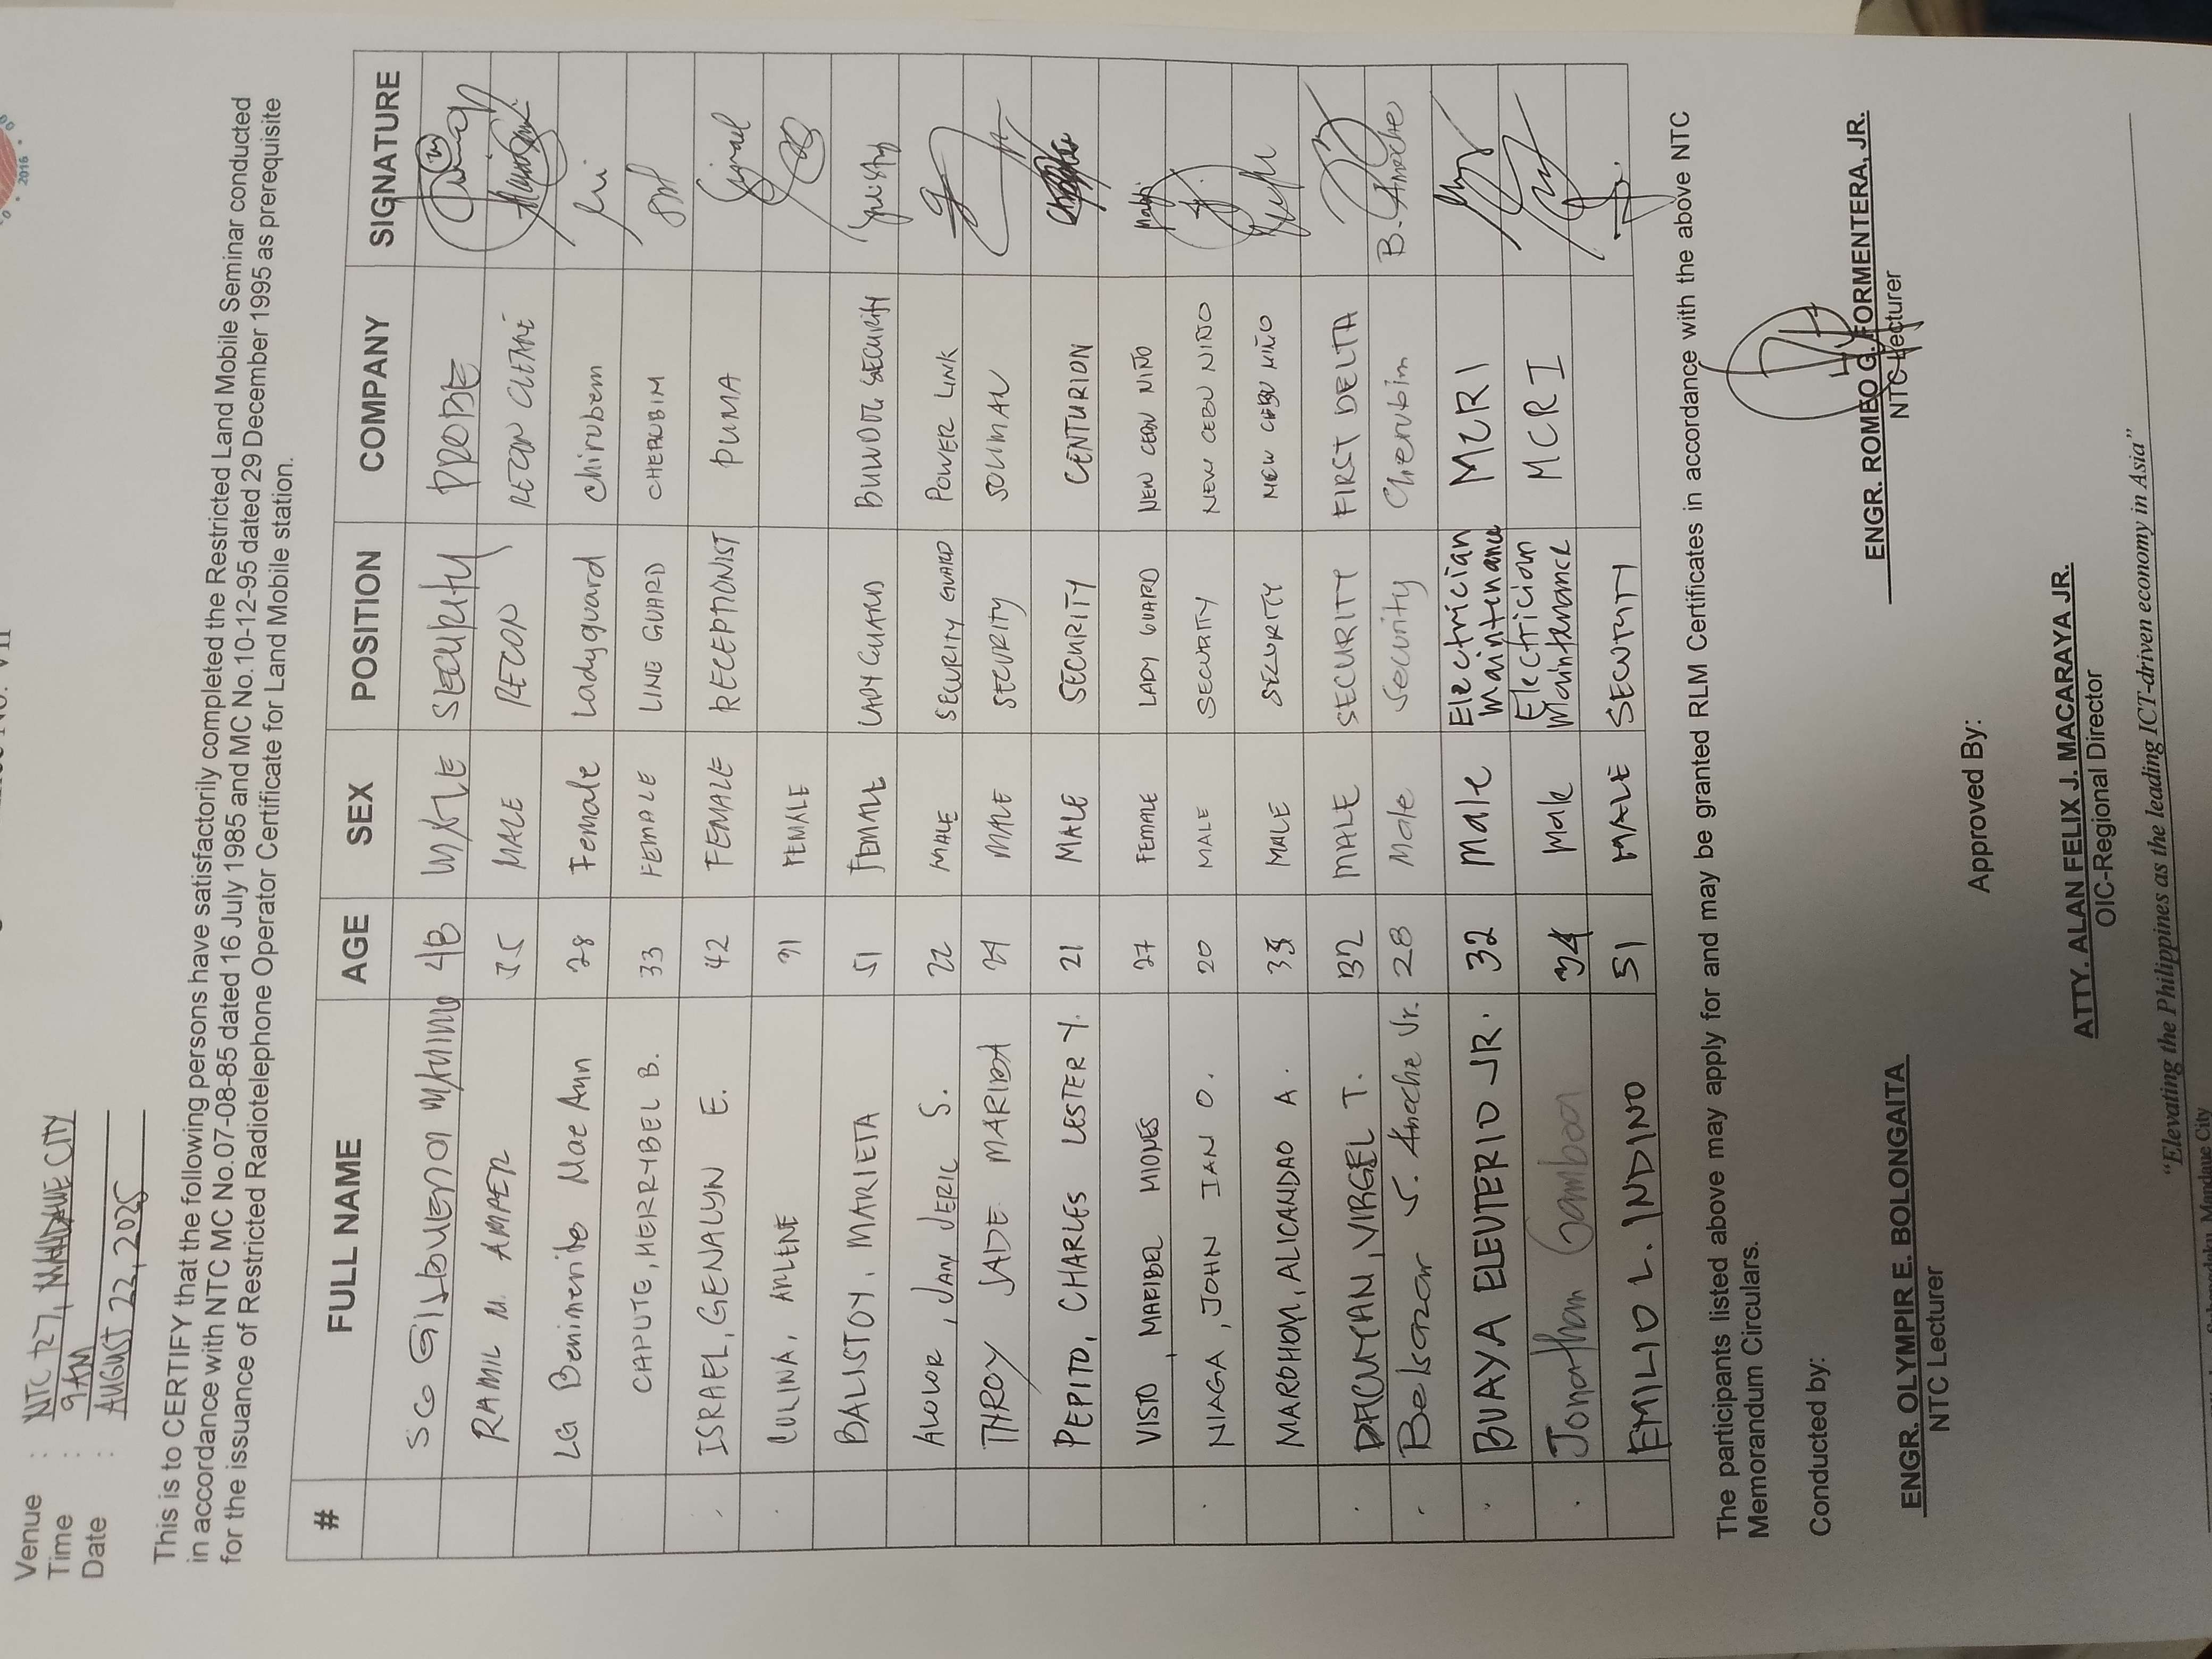 2016
Venue : NTC R7, MANDAUE CITY
Time : 9AM
Date : AUGUST 22, 2025
This is to CERTIFY that the following persons have satisfactorily completed the Restricted Land Mobile Seminar conducted
in accordance with NTC MC No.07-08-85 dated 16 July 1985 and MC No.10-12-95 dated 29 December 1995 as prerequisite
for the issuance of Restricted Radiotelephone Operator Certificate for Land Mobile station.
# FULL NAME AGE SEX POSITION COMPANY SIGNATURE
SG MALE SECURITY PROBE
RAMIL M. AMPER MALE RECON RECON
LG Benimerito Mae Ann 28 Female Ladyguard Chirubem
CAPUTE, MERRYBEL B. 33 FEMALE LINE GUARD CHERUBIM
ISRAEL, GENALYN E. 42 FEMALE RECEPTIONIST PUMA
COLINA, ARLENE FEMALE
BALISTOY, MARIETA 51 FEMALE LADY GUARD SECURITY
ALOLOR, JAN JERIC S. 22 MALE SECURITY GUARD POWER LINK
THROY JADE MARIBA MALE SECURITY SOLIMAN
PEPITO, CHARLES LESTER Y. 21 MALE SECURITY CENTURION
VISTO, MARIBEL MIONES 27 FEMALE LADY GUARD NEW CEBU NIÑO
NIAGA, JOHN IAN O. 20 MALE SECURITY NEW CEBU NIÑO
MARDHOM, ALICANDAO A. MALE SECURITY NEW CEBU NIÑO
VIRGEL T. 32 MALE SECURITY FIRST DELTA
Belsazar S. Anoche Jr. 28 Male Security Cherubim B. Anoche
BUAYA ELEUTERIO JR. 32 Male Electrician Maintenance MCRI
Jonathan Gamboa 34 Male Electrician Maintenance MCRI
EMILIO L. INDINO 51 MALE SECURITY
The participants listed above may apply for and may be granted RLM Certificates in accordance with the above NTC
Memorandum Circulars.
Conducted by:
ENGR. OLYMPIR E. BOLONGAITA
NTC Lecturer
ENGR. ROMEO G. FORMENTERA, JR.
NTC Lecturer
Approved By:
ATTY. ALAN FELIX J. MACARAYA JR.
OIC-Regional Director
“Elevating the Philippines as the leading ICT-driven economy in Asia”
Mandaue City